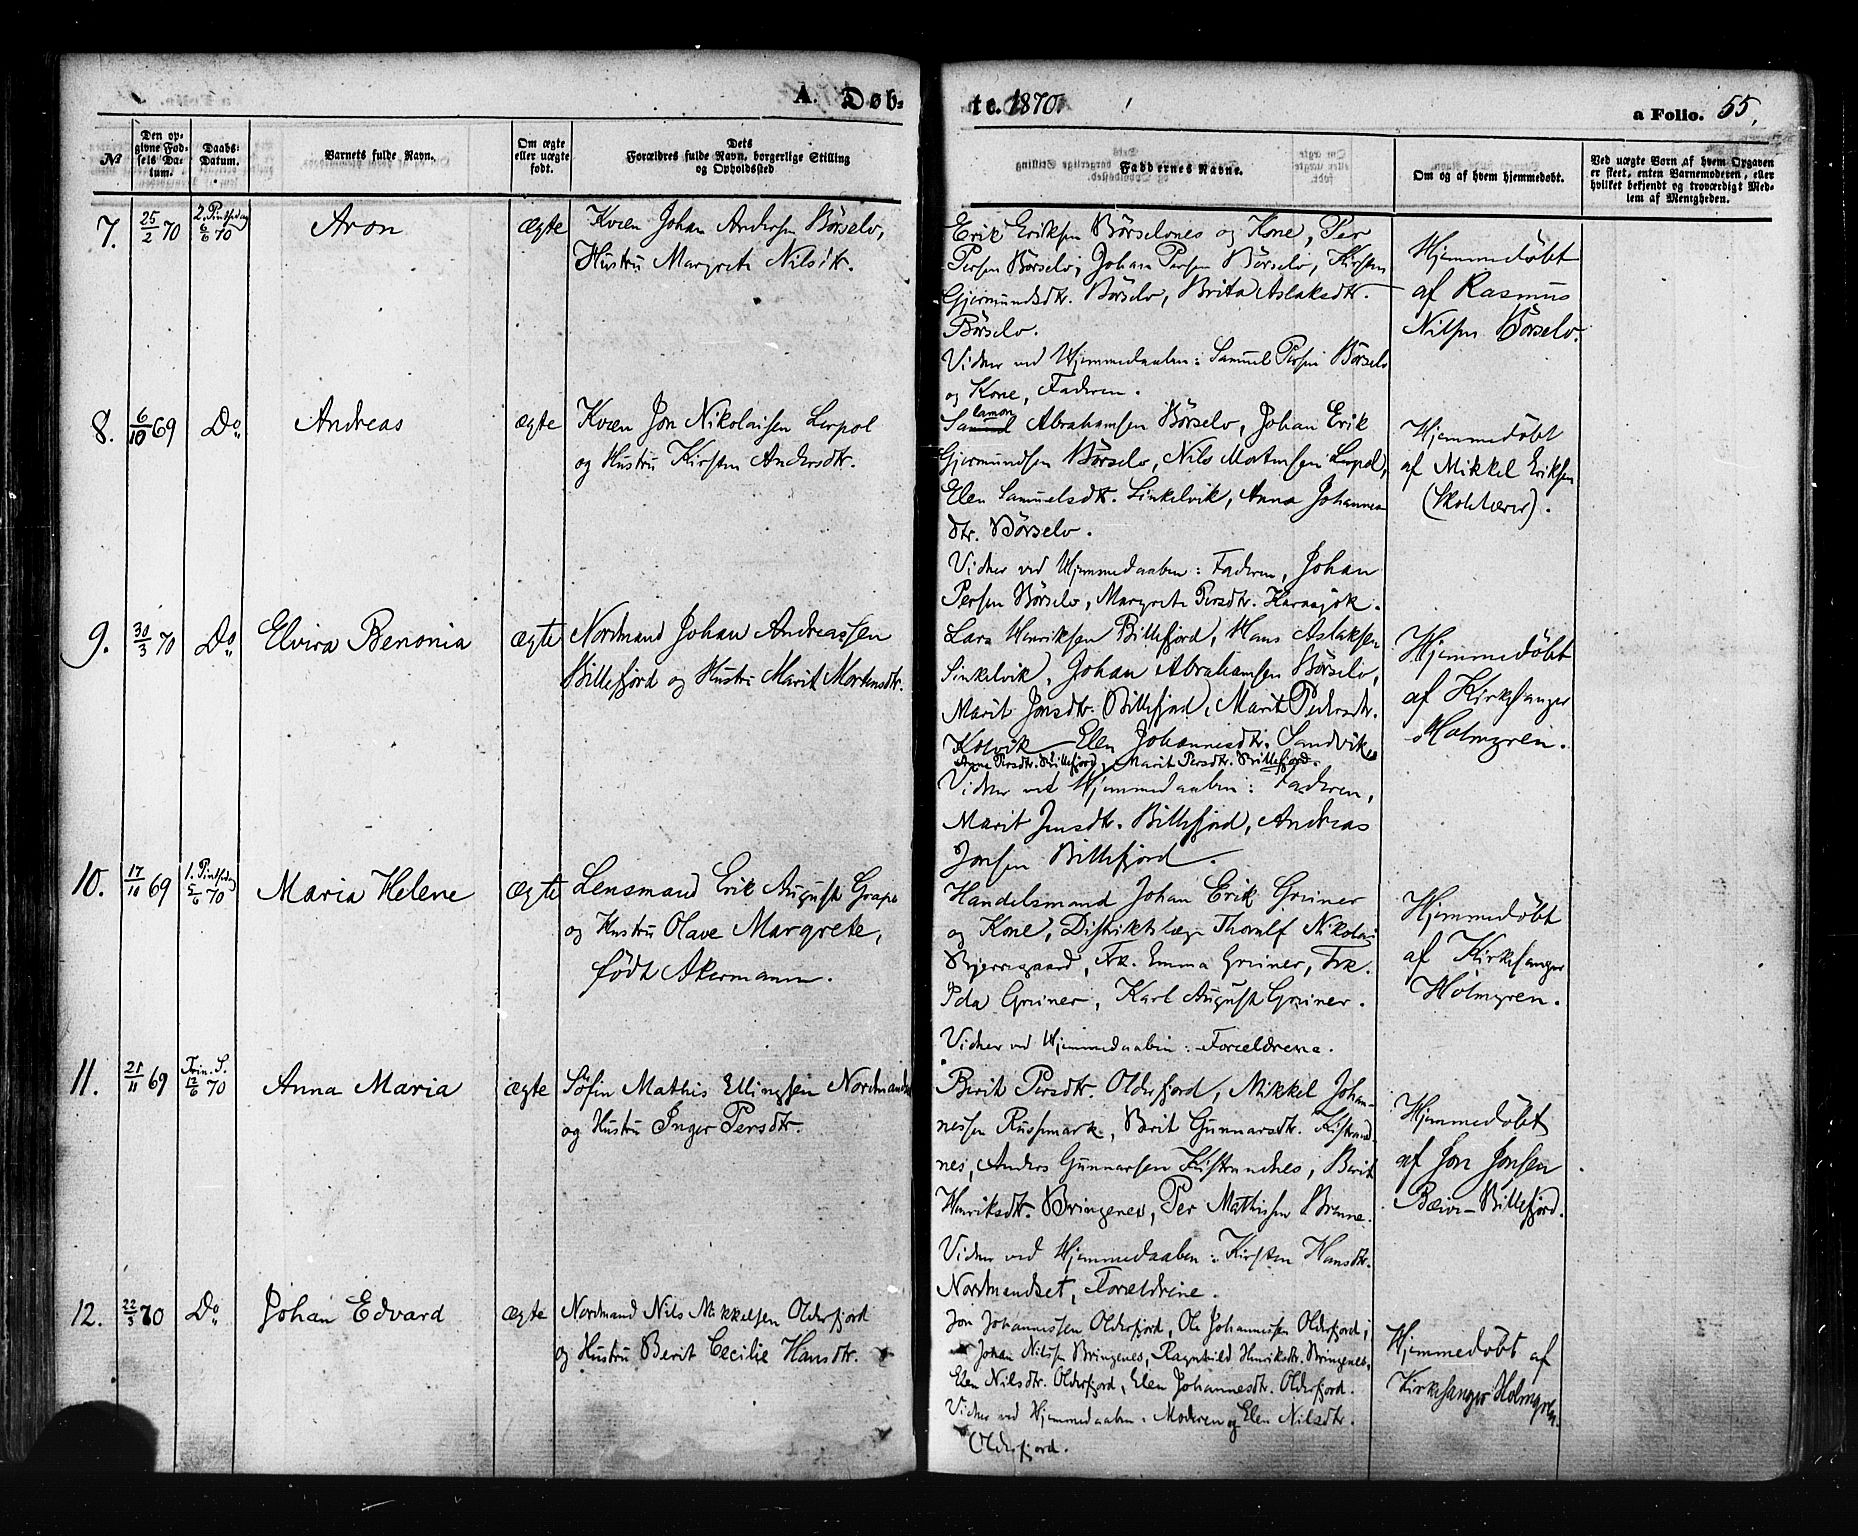 A. Døb-
te. 1870.
a Folio. 55.
№
Den op-
givne Fød-
sels Da-
tum.
Daabs-
Datum.
Barnets fulde Navn.
Om ægte
eller uægte
født.
Dets
Forældres fulde Navn, borgerlige Stilling
og Opholdssted
Faddernes Navne.
Om og af hvem hjemmedøbt.
Ved uægte Børn af hvem Opgaven
er skeet, enten Barnemoderen, eller
hvilket bekjendt og troværdigt Med-
lem af Menigheden.
7.
25/2 70
2. Pintsedag
6/6 70
Aron
ægte
Kvæn Johan Andersen Børselv,
Hustru Margrete Nilsdtr.
Erik Eriksen Børselvnes og Kone, Per
Persen Børselv, Johan Persen Børselv, Kirsten
Gjermundsdtr. Børselv, Brita Aslaksdtr.
Børselv.
Vidner ved Hjemmedaaben: Samuel Persen Børselv
og Kone, Faderen.
Hjemmedøbt
af Rasmus
Nilsen Børselv.
8.
6/10 69
Do
Andreas
ægte
Kvæn Jon Nikolaisen Lerpol
og Hustru Kirsten Andersdtr.
Salamon Abrahamsen Børselv, Johan Erik
Gjermundsen Børselv, Nils Mortensen Lerpol,
Elen Samuelsdtr. Sinkelvik, Anna Johannes-
dtr. Børselv.
Vidner ved Hjemmedaaben: Faderen, Johan
Persen Børselv, Margrete Persdtr. Karasjok.
Hjemmedøbt
af Mikkel Eriksen
(Skolelærer).
9.
30/3 70
Do
Elvira Benonia
ægte
Nordmand Johan Andreassen
Billefjord og Hustru Marit Mortensdtr.
Lars Henriksen Billefjord, Hans Aslaksen
Sinkelvik, Johan Abrahamsen Børselv,
Marit Jonsdtr. Billefjord, Marit Pedersdtr.
Kolvik Elen Johannesdtr. Sandvik,
Anne Persdtr. Billefjord, Marit Persdtr. Billefjord.
Vidner ved Hjemmedaaben: Faderen,
Marit Jonsdtr. Billefjord, Andreas
Jonsen Billefjord.
Hjemmedøbt
af Kirkesanger
Holmgren.
10.
17/10 69
1. Pintsedag
5/6 70
Maria Helene
ægte
Lensmand Erik August Grape
og Hustru Olave Margrete,
født Akermann.
Handelsmand Johan Erik Griner
og Kone, Distriktslæge Thorulf Nikolai
Bjerregaard, Frk. Emma Griner, Frk.
Ida Griner, Karl August Griner.
Vidner ved Hjemmedaaben: Forældrene.
Hjemmedøbt
af Kirkesanger
Holmgren.
11.
21/11 69
Trin. S.
12/6 70
Anna Maria
ægte
Søfin Mathis Ellingsen Nordmandset
og Hustru Inger Persdtr.
Berit Persdtr. Olderfjord, Mikkel Johan-
nessen Russemark, Berit Gunnarsdtr. Kistrand-
nes, Anders Gunnarsen Kistrandnes, Berit
Henriksdtr. Bringenes, Per Mathisen Brenne.
Vidner ved Hjemmedaaben: Kirsten Hansdtr.
Nordmandset, Forældrene.
Hjemmedøbt
af Jon Jonsen
Bæivi-Billefjord.
12.
22/3 70
Do
Johan Edvard
ægte
Nordmand Nils Mikkelsen Olderfjord
og Hustru Berit Cecilie Hansdtr.
Jon Johannessen Olderfjord, Ole Johannessen Olderfjord,
Johan Nilsen Bringenes, Ragnhild Henriksdtr. Bringenes,
Elen Nilsdtr. Olderfjord, Elen Johannesdtr. Olderfjord.
Vidner ved Hjemmedaaben: Moderen og Elen Nilsdtr.
Olderfjord.
Hjemmedøbt af
Kirkesanger Holmgren.